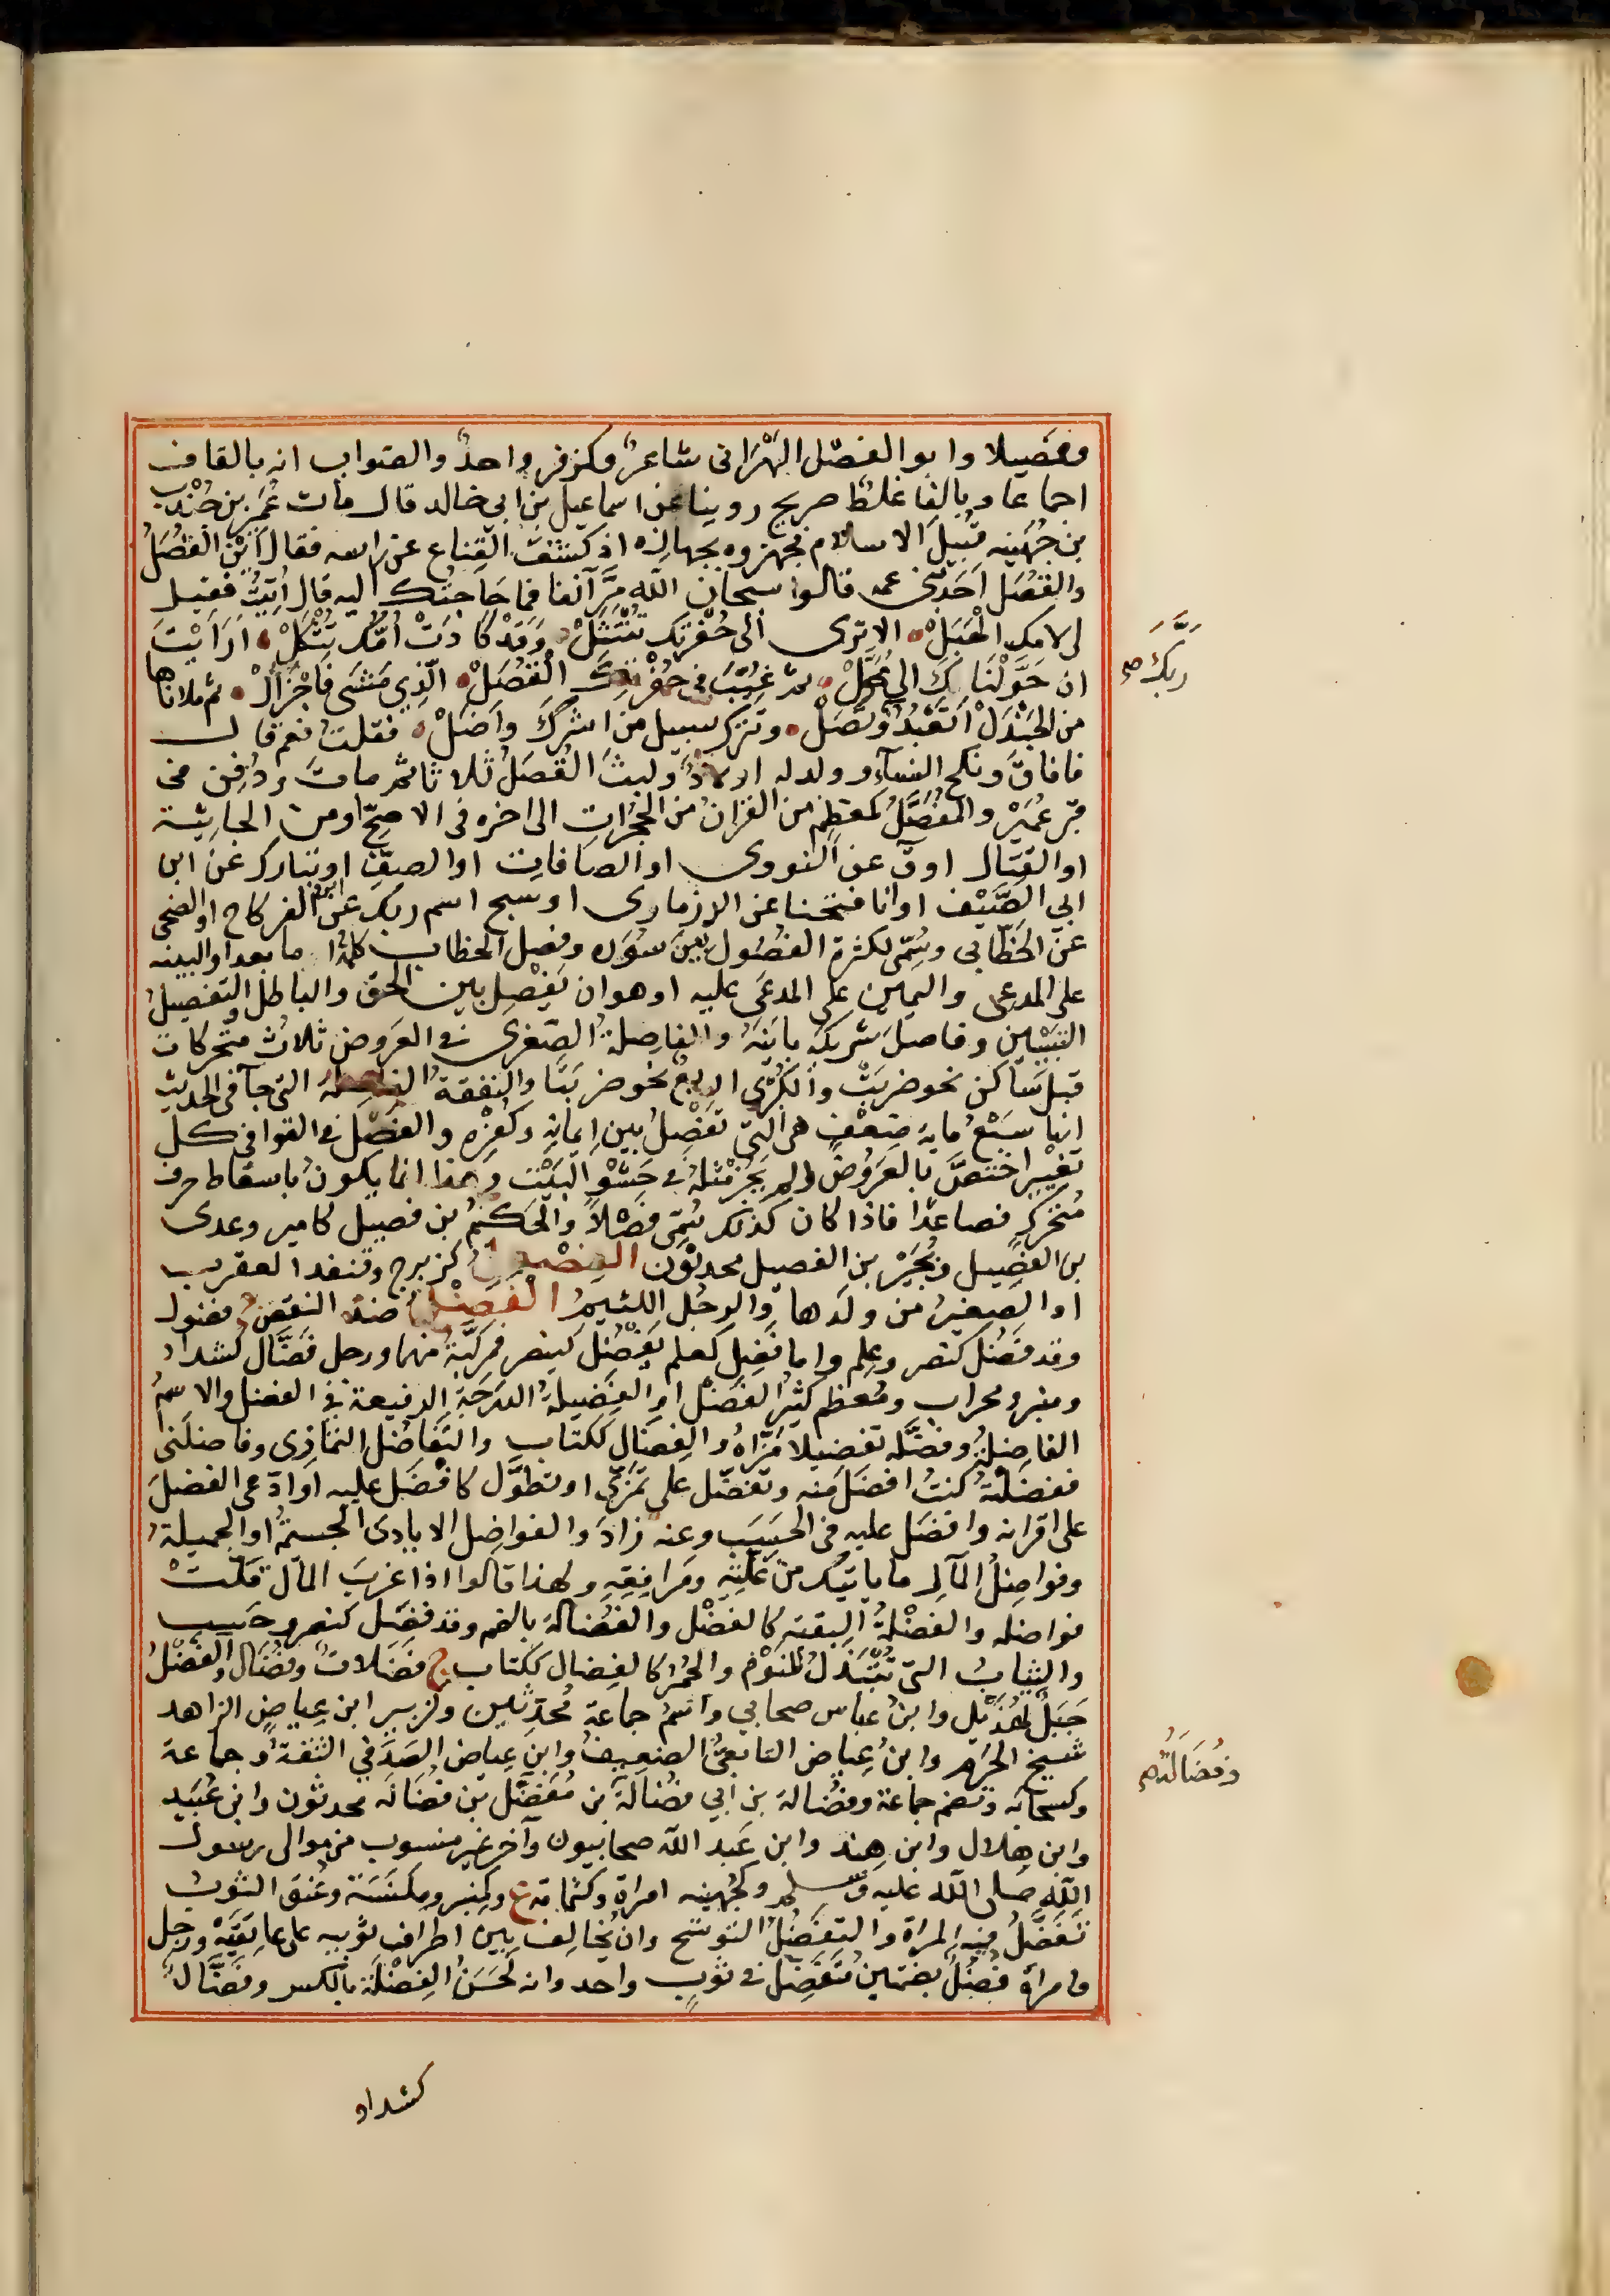 وفصيلا وابو الفصل البهراني شاعر وكزفر واحد والصواب انه بالقاف
اجماعا وبالفا غلط صريح روينا عن اسماعيل بن ابي خالد قال مات عُمَير بن جُنْدَب
من جُهَينه قُبَيلَ الاسلام فجهزوه بجهازه اذ كشفَ القِناع عن راسه فقال اَيْنَ القُصَلُ
والقُصَلُ اَحَدُ بَنِي عمه قالوا سبحان الله مَرَّ آنفا فما حَاجتُك اليه قال اُتِيْتُ فقيل
لي لامك الهَبَلْ الا ترى الى حُفْرَتِك تُنْتَثَلْ وَقَدْ كَادَتْ اُمُّك تَثْكَلْ ارَاَيْتَ
ان حَوَّلْنَاكَ الي مُحَوَّلْ ثم غُيِّبَ في حُفْرَتِكَ القُصَلْ الّذِي مَشَى فَاحْزَاَلْ ثم ملاناها
من الجَنْدَلْ اَتَعْبُدُ رَبَّكَ وتُصَلْ وتترك سبيل من اشركَ واَضَلْ فقلت نعم قال
فافاقَ ونكح النسآء وولد له اولادٌ ولبثَ القُصَلُ ثلاثا ثم ماتَ ودُفِنَ في
قبر عُمَيْرٍ والمُفَصَّلُ كمعظم من القران من الحجرات الى اخره في الاصحّ او من الجاثية
او القتال او ق عن النووى او الصافات او الصفّ او تبارك عن ابن
ابي الصَّيْف او انا فتحنا عن الدزمارى او سبح اسم ربك عن ابن الفركاح او الضحى
عن الخَطَّابي وسُمّى لكثرة الفصُول بَيْنَ سُوَره وفصل الخطاب كلمةُ اما بعد او البينه
على المدعى واليمين على المدعَى عليه او هو ان يَفْصِل بين الحق والباطل والتفصيلُ
التبيين وفاصلَ شريكَه باينَهُ والفاصلةُ الصّغرى فى العَروض ثلاث متحركات
قبل ساكن نحو ضربَتْ والكبرى اربع نحو ضربَتَا والنفقة الفاصلة التى جآ فى الحديث
انها سَبْعُ مايةِ ضِعْفٍ هى التى تَفْصِلُ بين ايمانِهِ وكفرِه والفصل فى القوافى كل
تغيير اختصَّ بالعَروض ولم يَجُز مثلهُ فى حَشْو البَيْت وهذا انما يكونُ باسقاط حرف
مُتحرّك فصاعدًا فاذا كان كذلك سُمّى فَصْلاً والحَكمُ بن فصيل كامير وعدى
بن الفصيل وبُجَيْر بن الفصيل محدثون الفصعل كزبرج وقنفد العقرب
او الصغيرُ من ولَدها والرجُل اللئيمُ الفضل ضد النقص ج فضول
وقد فضل كنصر وعلم واما فَضِل كعلم يَفْضُل كينصر فمركّبَةٌ منهما ورجل فَضَّال كشداد
ومنبر ومحراب ومُعظم كثير الفَضْل والفَضيلةُ الدرَجَة الرفيعة فى الفضل والاسمُ
الفاضِلةُ وفضّله تفضيلا مَزّاهُ والفِضَال ككتاب والتَّفاضُل التمازى وفاضلَنى
ففضَلتُه كنتُ افضل منه وتفضّل على تَمَزّى او تطوَّل كافْضَل عليه او ادّعى الفضلَ
على اقرانه وافضَل عليه فى الحسَب وعنه زادَ والفواضل الايادى الجسيمةُ او الجميلةُ
وفواضِلُ المآلِ ما ياتيك من غَلّتِهِ ومَرافِقِهِ ولهذا قالوا اذا عَزبَ المال قلّتْ
فواضله والفضْلةُ البقية كالفضْل والفُضالة بالضم وقد فضل كنصر وحَسِب
والثيابُ التى تُبْتَذَلُ للنَّوْم والخمرُ كالفِضال ككتاب ج فضَلاتٌ وفِضَال والفَضْلُ
جَبَلٌ لهُذَيْل وابنُ عباس صحابي واسمُ جماعة محدثين وكزبير ابن عِياضٍ الزاهد
شيخ الحَرَم وابنُ عِياض التابعيُّ الضعيفُ وابن عِياض الصَدَفيُّ الثقةُ وجماعة
وكسحابة وتضم جماعة وفُضالة بن ابي فضالةَ بن مُفَضَّل بن فَضَالَه محدثون وابن عُبَيد
وابن هلال وابن هند وابن عَبد الله صحابيون وآخر غير منسوب من موالى رسول
الله صلى الله عليه وسلم وكجُهينه امراة وكثمامة ع وكمِنبر ومِكنَسَة وعُنُق الثوبُ
تَفَضَّلُ فيه المراة والتَفَضُّلُ التوشح وان يُخالِفَ بين اطراف ثوبيه على عاتِقَيْه ورجل
وامراة فُضُلٌ بضمتين مُتَفَضِّلٌ فى ثوبٍ واحد وانه لَحَسَنُ الفِضْلَة بالكسر وفَضَّالٌ
رَبَّك صح
وفُضَالَتُه
كشداد